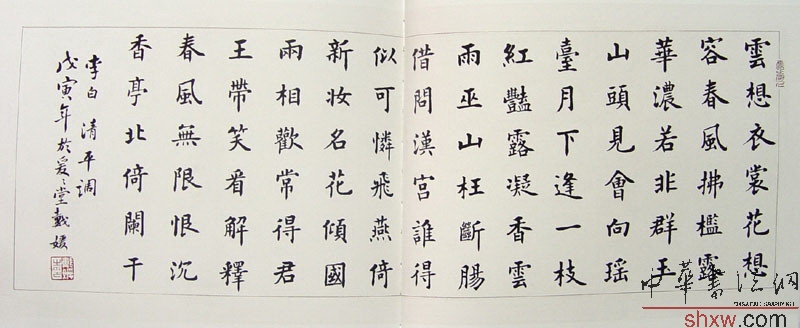 雲想衣裳花想
容春風拂檻露
華濃若非群玉
山頭見會向瑶
臺月下逢一枝
紅豔露凝香雲
雨巫山枉斷腸
借問漢宮誰得
似可憐飛燕倚
新妆名花傾國
兩相歡常得君
王帶笑看解釋
春風無限恨沉
香亭北倚闌干
李白 清平调
戊寅年於爰〻堂戴媛
中華書法网
shxw.com